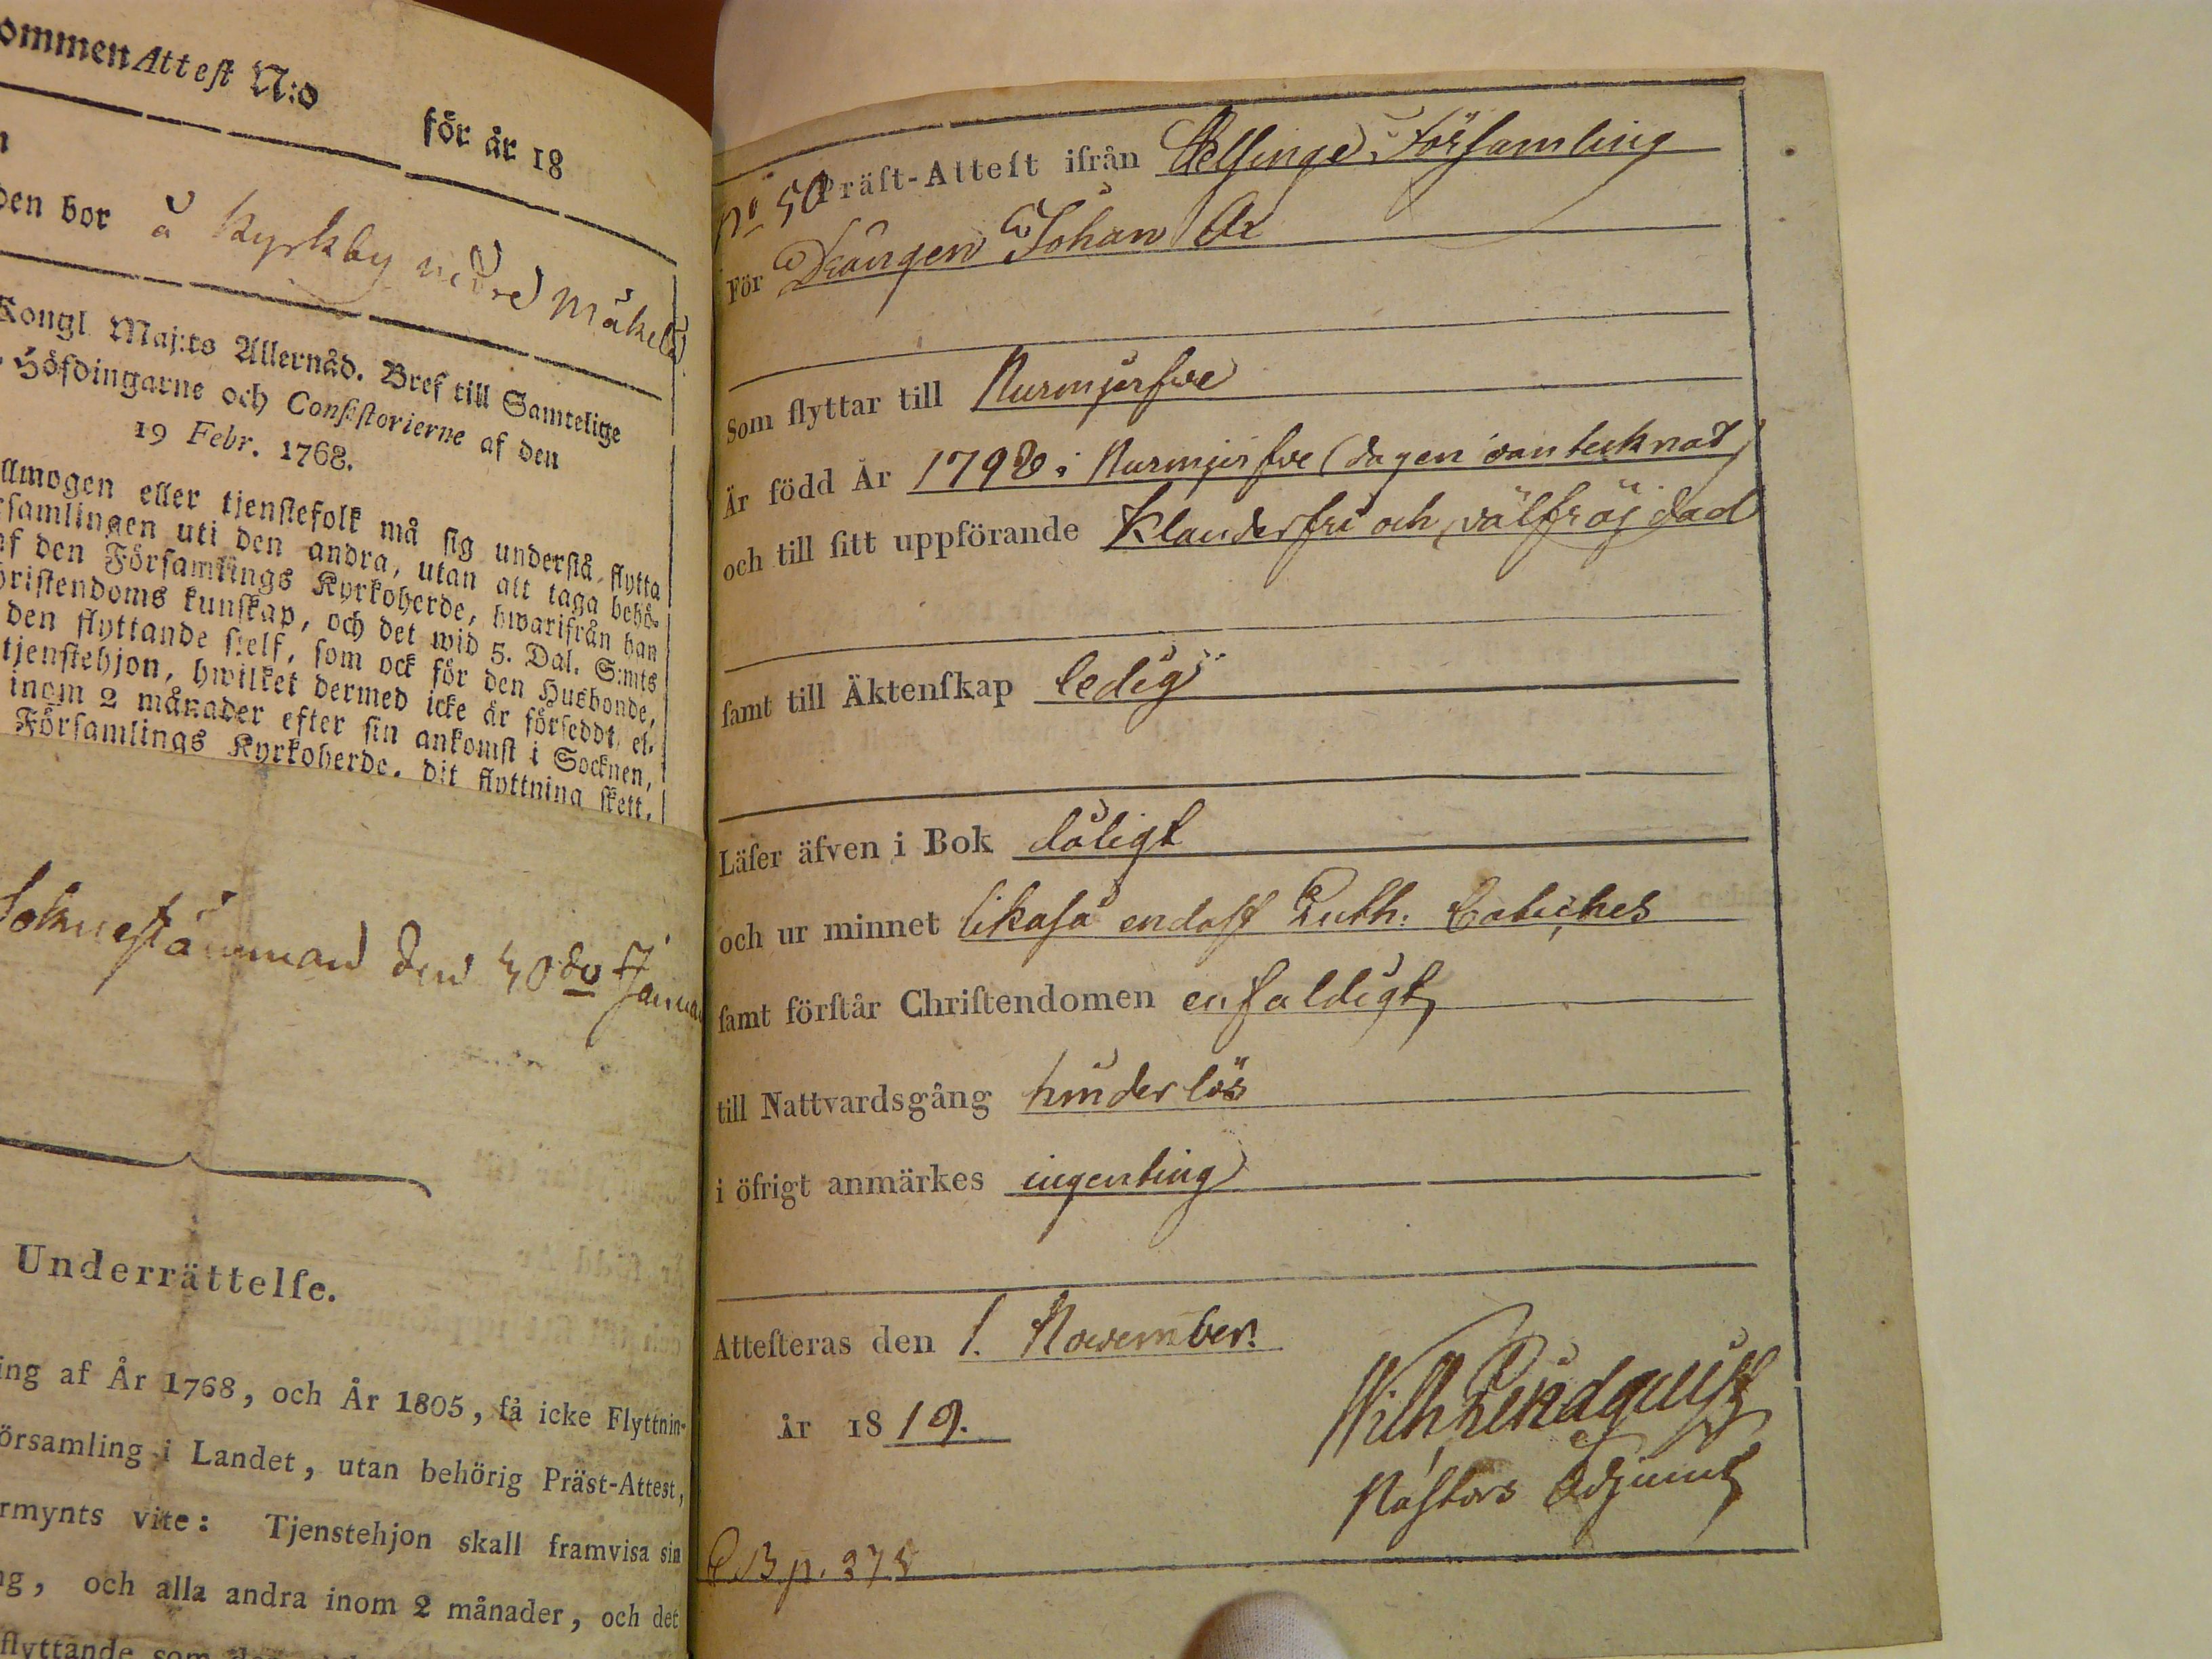 ommen Attest N:o
för år 18
n
den bor å Kyrkby nedre Mäkelä
Kongl Maj:ts Allernåd. Bref till Samtelige
Höfdingarne och Consistorierne af den
19 Febr. 1768.
llmogen eller tjenstefolk må sig understå flytta
rsamlingen uti den andra, utan att taga behö-
af den Församlings Kyrkoherde, hwarifrån han
hristendoms kunskap, och det wid 5. Dal. S:mts
den flyttande sielf, som ock för den Husbonde,
tjenstehjon, hwilket dermed icke är förseddt, el-
inom 2 månader efter sin ankomst i Socknen,
Församlings Kyrkoherde, dit flyttning skett.
Socknestämman den 30de Janua
Underrättelse.
ing af År 1768, och År 1805, få icke Flyttnin-
örsamling i Landet, utan behörig Präst-Attest,
rmynts vite: Tjenstehjon skall framvisa sin
ng, och alla andra inom 2 månader, och det
flyttande som
No 50
Präst-Attest ifrån Helsinge Församling
För Drängen Johan
Som flyttar till Nurmijerfwe
Är född År 1798 i Nurmijerfwe (dagen oantecknad)
och till sitt uppförande Klanderfri och välfräjdad
samt till Äktenskap ledig
Läser äfven i Bok dåligt
och ur minnet likaså endast Luth. Cateches
samt förstår Christendomen enfaldigt
till Nattvardsgång hinderlös
i öfrigt anmärkes ingenting
Attesteras den 1. November.
år 1819.
Wilh Lindquist
Pastors Adjunct
p. 378